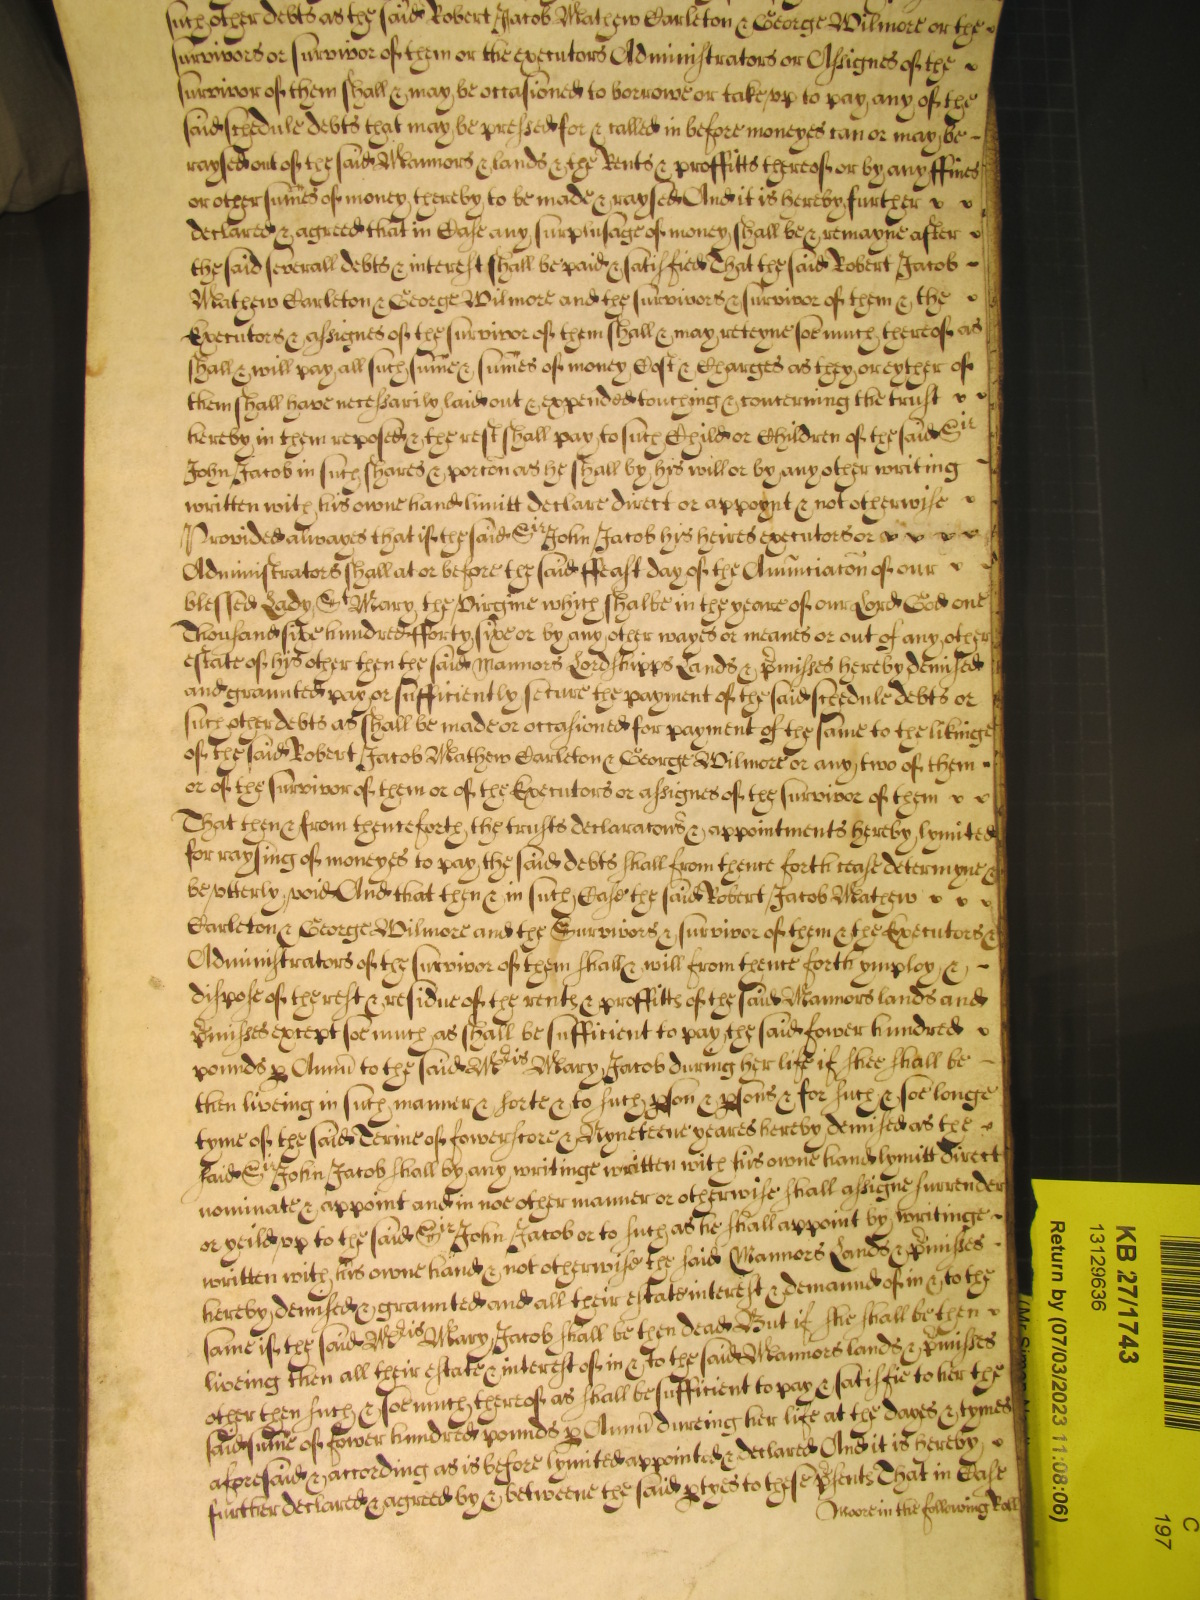 such other debts as the said Robert Jacob Mathew Carleton & George Wilmore or the
survivors or survivor of them or the executors Administrators or Assignes of the
survivor of them shall & may be occasioned to borrowe or take vp to pay any of the
said schedule debts that may be pressed for & called in before moneyes can or may be
raysed out of the said Mannors & lands & the Rents & proffitts thereof or by any ffines
or other sumes of money thereby to be made & raysed And it is hereby further
declared & agreed that in Case any surplusage of money shall be & remayne after
the said severall debts & interest shall be paid & satisfied That the said Robert Jacob
Mathew Carleton & George Wilmore and the survivors & survivor of them & the
Executors & assignes of the survivor of them shall & may reteyne soe much thereof as
shall & will pay all such sume & sumes of money Cost & Charges as they or eyther of
them shall have necessarily laid out & expended touching & concerning the trust
hereby in them reposed & the rest shall pay to such Child or Children of the said Sir
John Jacob in such shares & porcon as he shall by his will or by any other writing
written with his owne hand limitt declare direct or appoynt & not otherwise
Provided alwayes that if the said Sir John Jacob his heires executors or
Administrators shall at or before the said ffeast day of the Anunciacon of our
blessed Lady St Mary the Virgine which shalbe in the yeare of our Lord God one
Thousand sixe hundred fforty sixe or by any other wayes or meanes or out of any other
estate of his other then the said Mannors Lordshipps Lands & pmisses hereby demised
and graunted pay or sufficiently secure the payment of the said scedule debts or
such other debts as shall be made or occasioned for payment of the same to the likinge
of the said Robert Jacob Mathew Carleton & George Wilmore or any two of them
or of the survivor of them or of the Executors or assignes of the survivor of them
That then & from thenceforth the trusts declaracons & appointments hereby lymited
for raysing of moneyes to pay the said debts shall from thence forth cease determyne &
be vtterly void And that then & in such Case the said Robert Jacob Mathew
Carleton & George Wilmore and the Survivors & survivor of them & the Executors &
Administrators of the survivor of them shall & will from thence forth ymploy &
dispose of the rest & residue of the rents & proffitts of the said Mannors lands and
pmisses except soe much as shall be sufficient to pay the said fower hundred
pounds p Annu to the said Mris Mary Jacob during her life if shee shall be
then liveing in such manner & sorte & to such pson & psons & for such & soe longe
tyme of the said Terme of fowerscore & Nyneteene yeares hereby demised as the
said Sir John Jacob shall by any writinge written with his owne hand lymitt direct
nominate & appoint and in noe other manner or otherwise shall assigne surrender
or yeild vp to the said Sir John Jacob or to such as he shall appoint by writinge
written with his owne hand & not otherwise the said Mannors Lands & pmisses
hereby demised & graunted and all their estate interest & demannd of in & to the
same if the said Mris Mary Jacob shall be then dead But if she shall be then
liveing then all their estate & interest of in & to the said Mannors lands & pmisses
other then such & soe much thereof as shall be sufficient to pay & satisfie to her the
said sume of fower hundred pounds p Annu dureing her life at the dayes & tymes
aforesaid & according as is before lymited appointed & declared And it is hereby
further declared & agreed by & betweene the said ptyes to these psents That in Case
Moore in the following Roll
KB 27/1743
13129636
Return by (07/03/2023 11:08:06)
C
197